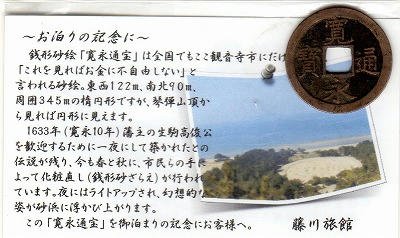 ～お泊りの記念に～
銭形砂絵「寛永通宝」は全国でもここ観音寺市にだけ
「これを見ればお金に不自由しない」と
言われる砂絵。東西122m、南北90m、
周囲345mの楕円形ですが、琴弾山頂か
ら見れば円形に見えます。
1633年(寛永10年)藩主の生駒高俊公
を歓迎するために一夜にして築かれたとの
伝説が残り、今も春と秋に、市民らの手に
よって化粧直し(銭形砂ざらえ)が行われ
ています。夜にはライトアップされ、幻想的な
姿が砂浜に浮かび上がります。
この「寛永通宝」を御泊まりの記念にお客様へ。
藤川旅館
寛永通寳